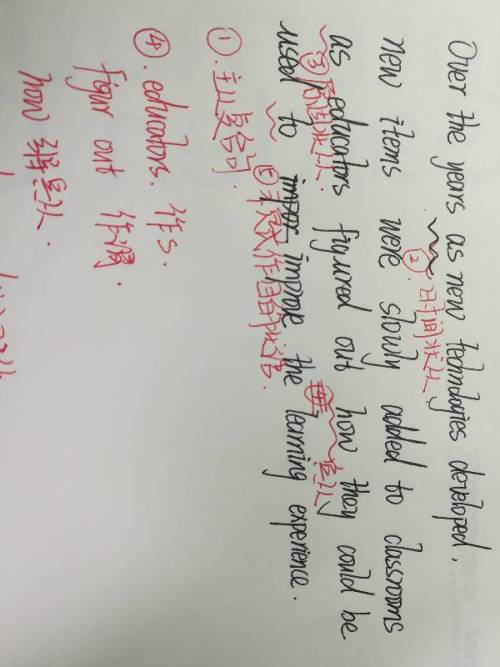 Over the years as new technologies developed,
② 时间状从
new items were slowly added to classrooms
as educators figured out how they could be
③ 原因状从
宾从
used to impor improve the learning experience.
⑤ 不定式作目的状语.
① 主从复合句.
④. educators. 作S.
figur out 作谓.
how 引导宾从.